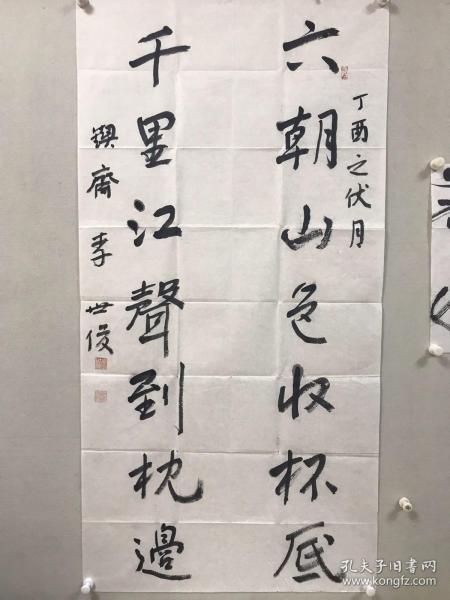 丁酉之伏月
六朝山色收杯底
千里江聲到枕邊
鍥齋 李世俊
孔夫子旧书网
www.kongfz.com